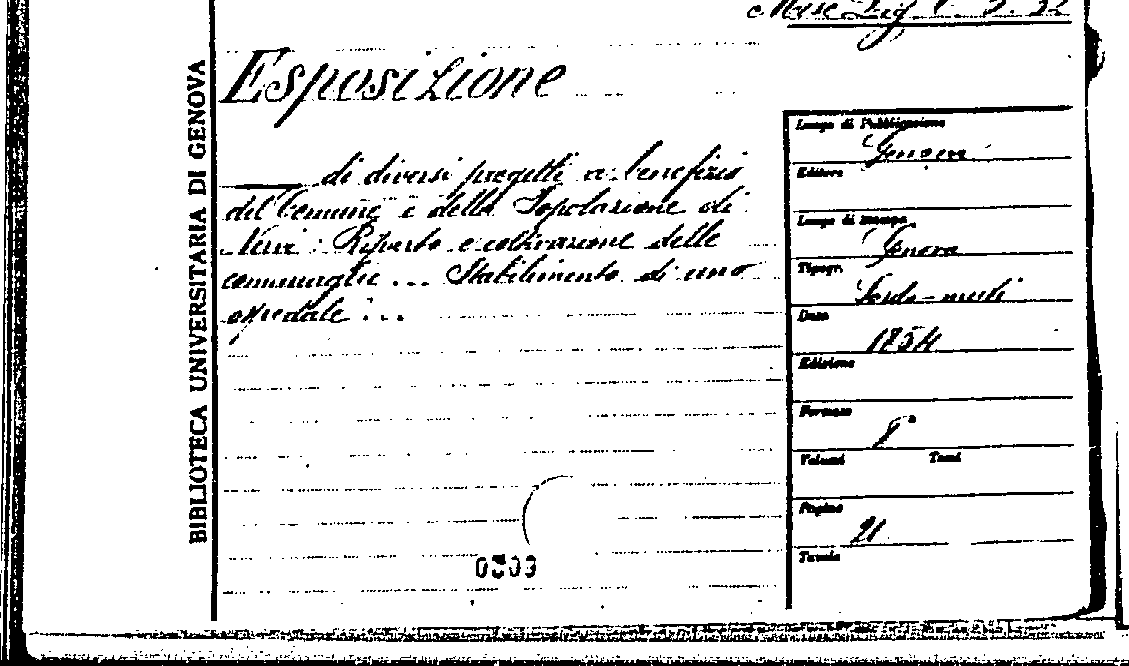 Misc. Lig.
BIBLIOTECA UNIVERSITARIA DI GENOVA
Esposizione
di diversi progetti a benefizio
del Comune e della Popolazione di
Nervi: Riparto e coltivazione delle
comunaglie ... Stabilimento di uno
ospedale ...
0309
Luogo di Pubblicazione
Genova
Editore
Luogo di stampa
Genova
Tipogr.
Sordo-muti
Data
1854
Edizione
Formato
8°
Volumi Tomi
Pagine
21
Tavole